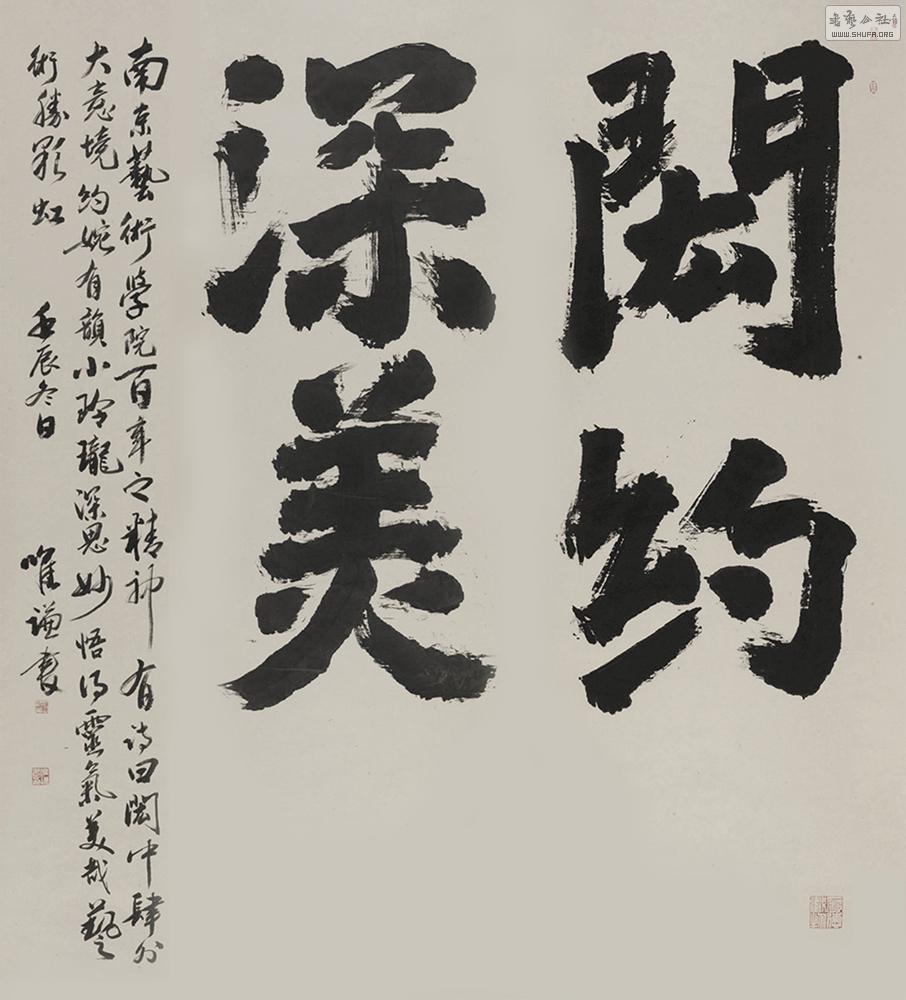 書藝公社
WWW.SHUFA.ORG
閎约
深美
南京藝術學院百年之精神 有诗曰閎中肆外
大意境约婉有韻小玲瓏深思妙悟得靈氣美哉藝
術勝虹 壬辰冬日 唯谦書